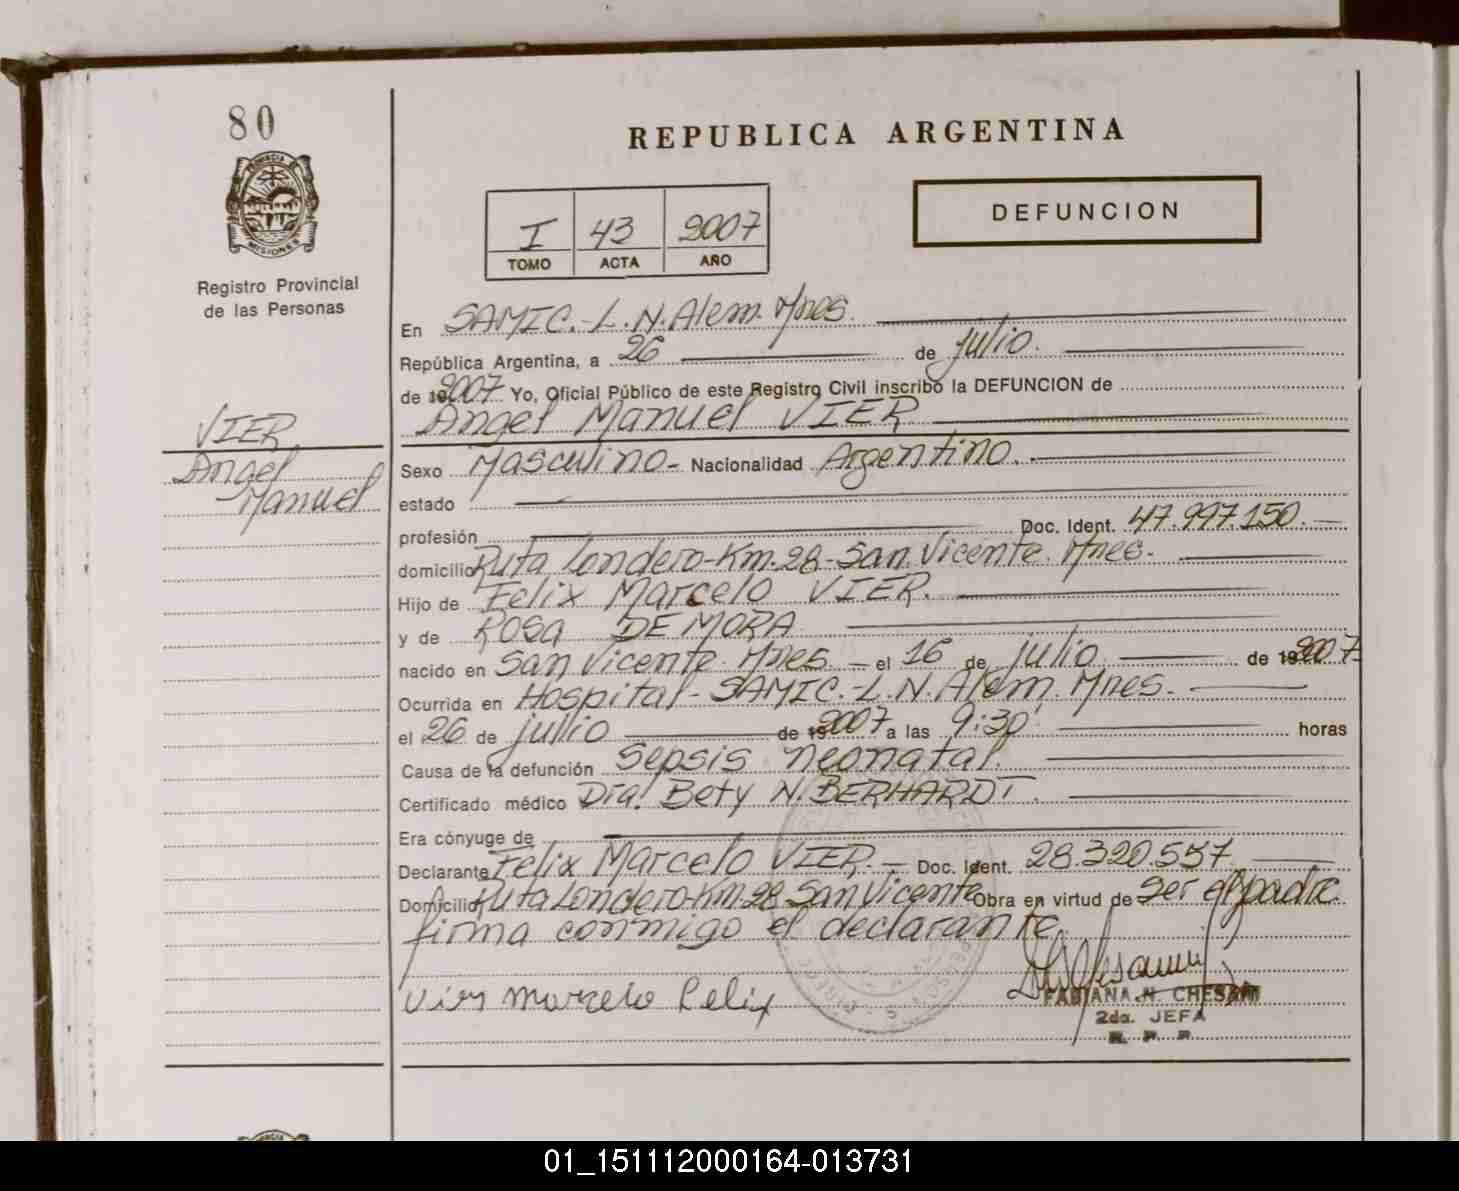 80
REPUBLICA ARGENTINA
PROVINCIA DE
MISIONES
Registro Provincial
de las Personas
I 43 2007
TOMO ACTA AÑO
DEFUNCION
VIER
Angel
Manuel
En SAMIC.-L.N.Alem. Mnes.
República Argentina, a 26 de julio.
de 2007 Yo, Oficial Público de este Registro Civil inscribo la DEFUNCION de
Angel Manuel VIER
Sexo Masculino- Nacionalidad Argentino.
estado
profesión Doc. Ident. 47.997.150.-
domicilio Ruta Londero-Km.28-San Vicente. Mnes.-
Hijo de Felix Marcelo VIER.
y de ROSA DE MORA
nacido en San Vicente. Mnes. - el 16 de julio de 2007-
Ocurrida en Hospital-SAMIC.-L.N.Alem. Mnes.-
el 26 de julio de 2007 a las 9:30' horas
Causa de la defunción Sepsis neonatal.
Certificado médico Dra. Bety N. BERHARDT.
Era cónyuge de
Declarante Felix Marcelo VIER.- Doc. Ident. 28.320.557
Domicilio Ruta Londero-Km.28-San Vicente Obra en virtud de ser el padre.
firma conmigo el declarante
Vier Marcelo Felix
FABIANA N. CHESANI
2da. JEFA
R. P. P.
01_151112000164-013731